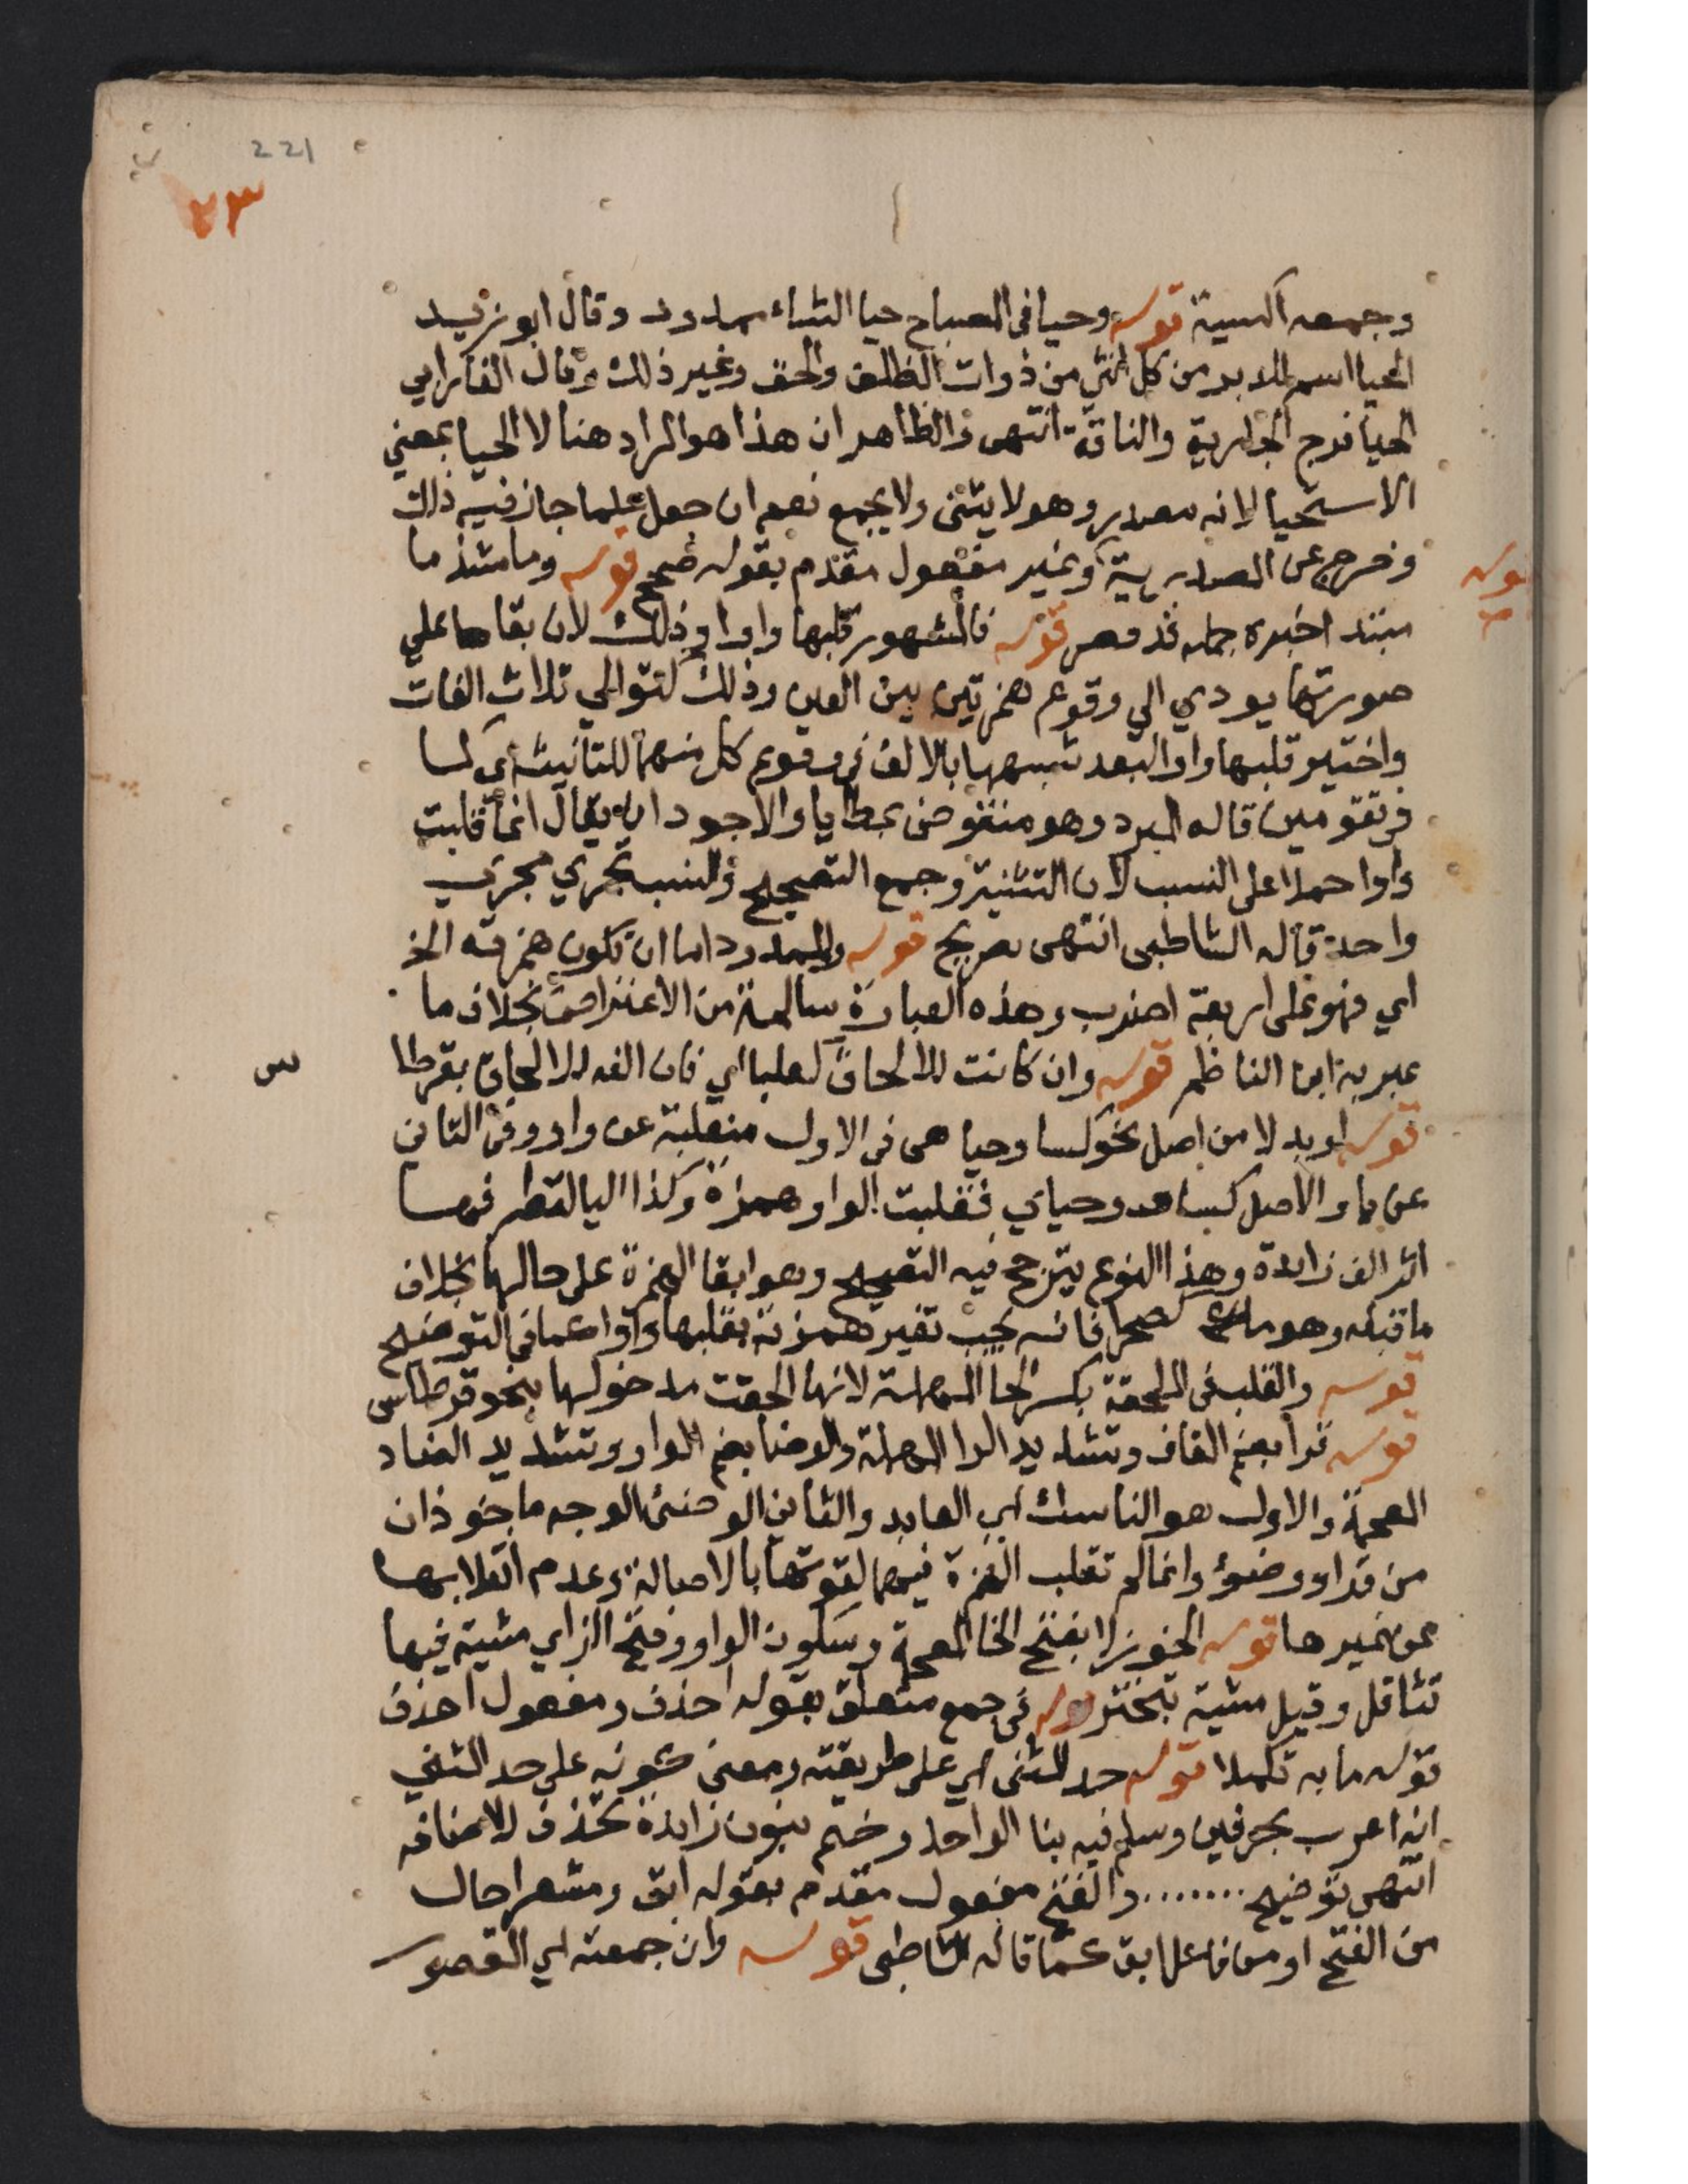 221
٢٣
وجمعه اكسية قوله وحيا في المصباح حيا الشاء ممدود وقال ابو زيد
الحيا اسم للدبر من كل انثي من ذوات الظلف والخف وغير ذلك وقال الفارابي
الحيا فرج الجارية والناقة انتهى والظاهر ان هذا هو المراد هنا لا الحيا بمعني
الاستحيا لانه مصدر وهو لا يثنى ولا يجمع نعم ان جعل علما جاز فيه ذلك
وخرج عن المصدرية وغير مفعول مقدم بقوله صحح قوله وما شذ ما
قوله
مبتدا خبره جملة قد قصر قوله فالمشهور قلبها واوا وذلك لان بقاها علي
صورتها يودي الي وقوع همزتين بين الفين وذلك كتوالي ثلاث الفات
واختير قلبها واوا لبعد شبهها بالالف في وقوع كل منهما للتانيث اي كسا
في تقومين قاله المبرد وهو منقوض بمطايا والاجود ان يقال انما قلبت
واوا حملا على النسب لان التثنية وجمع التصحيح والنسب تجري مجري
واحدة قاله الشاطبى انتهى تصريح قوله والممدود اما ان تكون همزته الخ
اي فهو على اربعة اضرب وهذه العبارة سالمة من الاعتراض بخلاف ما
عبر به ابن الناظم قوله وان كانت للالحاق كعلبا اي فان الفه للالحاق بقرطا
س
قوله او بدلا من اصل نحو كسا وحيا هى في الاول منقلبة عن واو وفي الثاني
عن يا والاصل كساو وحياي فقلبت الواو همزة وكذا اليا لتطرفهما
اثر الف زايدة وهذا النوع يترجح فيه التصحيح وهو ابقا الهمزة على حالها بخلاف
ما قبله وهو ما كصحرا فانه يجب تغير همزته بقلبها واوا كما في التوضيح
قوله والقلب في الملحقة بكسر الحا المهملة لانها الحقت مدخولها بنحو قرطاس
قوله قرا بضم القاف وتشديد الرا المهملة والوضا بضم الواو وتشديد الضاد
المعجمة والاول هو الناسك اي العابد والثاني الوضئ الوجه ماخوذان
من قرا ووضؤ وانما لم تقلب الهمزة فيهما لقوتها بالاصالة وعدم انقلابها
عن غيرها قوله الخوزلا بفتح الخا المعجمة وسكون الواو وفتح الزاي مشية فيها
تثاقل وقيل مشية تبختر قوله في جمع متعلق بقوله احذف ومفعول احذف
قوله ما به تكملا قوله حد المثنى اي على طريقته ومعنى كونه على حد المثني
انه اعرب بحرفين وسلم فيه بنا الواحد وختم بنون زايدة تحذف للاضافه
انتهى توضيح ........ والفتح مفعول مقدم بقوله ابق ومشعرا حال
من الفتح او من فاعل ابق كما قاله الشاطبى قوله وان جمعته اي المقصور